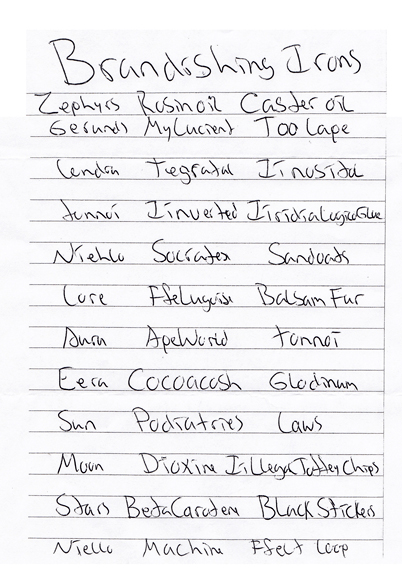 Brandishing Irons
Zephyrs Rosin oil Caster oil
Gerunds MyLucient Too Lape
Cendra Tegratal Iinosital
tonnoi Iinverted IiridiaLogicaGlue
Niehlo Socrates Sandoats
Lure Balsam Fur
Aura ApeWorld tonnoi
Eera Cocoacosh Glodinum
Sun Podiatries Laws
Moon Dioxine IillegaTaffeyChips
Stars BetaCarotene BlackStickers
Niello Machine Ffect Loop